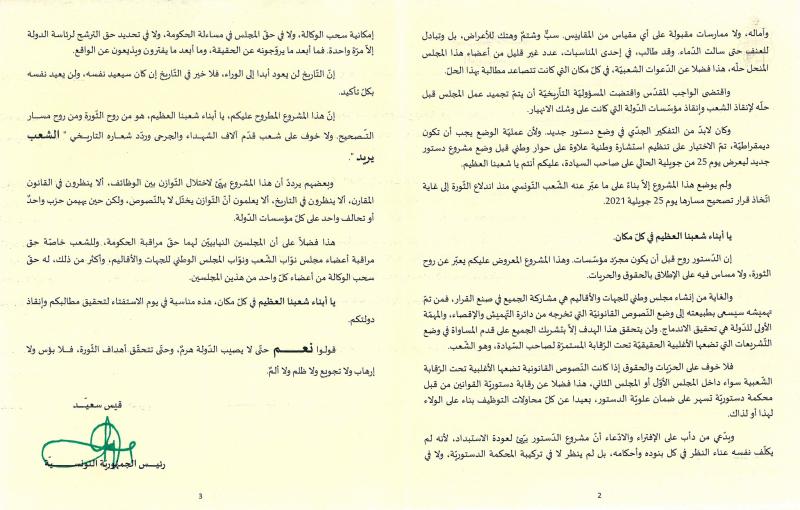 وآماله، ولا ممارسات مقبولة على أي مقياس من المقاييس. سبٌّ وشتمٌ وهتك للأعراض، بل وتبادل
للعنف حتى سالت الدّماء. وقد طالب، في إحدى المناسبات، عدد غير قليل من أعضاء هذا المجلس
المنحل حلّه، هذا فضلا عن الدّعوات الشعبيّة، في كلّ مكان التي كانت تتصاعد مطالبة بهذا الحلّ.
واقتضى الواجب المقدّس واقتضت المسؤوليّة التأريخيّة أن يتمّ تجميد عمل المجلس قبل
حلّه لإنقاذ الشعب وإنقاذ مؤسّسات الدّولة التي كانت على وشك الانهيار.
وكان لابدّ من التفكير الجدّي في وضع دستور جديد. ولأن عمليّة الوضع يجب أن تكون
ديمقراطيّة، تمّ الاختيار على تنظيم استشارة وطنية علاوة على حوار وطني قبل وضع مشروع دستور
جديد ليعرض يوم 25 من جويلية الحالي على صاحب السيادة، عليكم أنتم يا شعبنا العظيم.
ولم يوضع هذا المشروع إلاّ بناءً على ما عبّر عنه الشّعب التّونسي منذ اندلاع الثّورة إلى غاية
اتّخاذ قرار تصحيح مسارها يوم 25 جويلية 2021.
يا أبناء شعبنا العظيم في كلّ مكان.
إن الدّستور روح قبل أن يكون مجرّد مؤسّسات. وهذا المشروع المعروض عليكم يعبّر عن روح
الثورة، ولا مساس فيه على الإطلاق بالحقوق والحريات.
والغاية من إنشاء مجلس وطني للجهات والأقاليم هي مشاركة الجميع في صنع القرار، فمن تمّ
تهميشه سيسعى بطبيعته إلى وضع النّصوص القانونيّة التي تخرجه من دائرة التّهميش والإقصاء، والمهمّة
الأولى للدّولة هي تحقيق الاندماج. ولن يتحقق هذا الهدف إلاّ بتشريك الجميع على قدم المساواة في وضع
التّشريعات التي تضعها الأغلبية الحقيقيّة تحت الرّقابة المستمرّة لصاحب السّيادة، وهو الشّعب.
فلا خوف على الحرّيات والحقوق إذا كانت النّصوص القانونية تضعها الأغلبية تحت الرّقابة
الشّعبية سواء داخل المجلس الأوّل أو المجلس الثاني، هذا فضلا عن رقابة دستوريّة القوانين من قبل
محكمة دستوريّة تسهر على ضمان علويّة الدستور، بعيدا عن كلّ محاولات التوظيف بناء على الولاء
لهذا أو لذاك.
ويدّعي من دأب على الإفتراء والادّعاء أنّ مشروع الدّستور يهيّئ لعودة الاستبداد، لأنه لم
يكلّف نفسه عناء النظر في كلّ بنوده وأحكامه، بل لم ينظر لا في تركيبة المحكمة الدستوريّة، ولا في
2
إمكانية سحب الوكالة، ولا في حقّ المجلس في مساءلة الحكومة، ولا في تحديد حق الترشح لرئاسة الدولة
إلاّ مرّة واحدة. فما أبعد ما يروّجونه عن الحقيقة، وما أبعد ما يفترون ويذيعون عن الواقع.
إنّ التّاريخ لن يعود أبدا إلى الوراء، فلا خير في التّاريخ إن كان سيعيد نفسه، ولن يعيد نفسه
بكلّ تأكيد.
إنّ هذا المشروع المطروح عليكم، يا أبناء شعبنا العظيم، هو من روح الثّورة ومن روح مسار
التّصحيح. ولا خوف على شعب قدّم آلاف الشهداء والجرحى وردّد شعاره التاريخي " الشعب
يريد ".
وبعضهم يردّد أن هذا المشروع يهيّئ لاختلال التّوازن بين الوظائف، ألا ينظرون في القانون
المقارن، ألا ينظرون في التاريخ، ألا يعلمون أنّ التّوازن يختلّ لا بالنّصوص، ولكن حين يهيمن حزب واحدٌ
أو تحالف واحد على كلّ مؤسسات الدّولة.
هذا فضلاً على أن المجلسين النيابيّين لهما حقّ مراقبة الحكومة، وللشعب خاصّة حق
مراقبة أعضاء مجلس نوّاب الشّعب ونوّاب المجلس الوطني للجهات والأقاليم، وأكثر من ذلك، له حقّ
سحب الوكالة من أعضاء كلّ واحد من هذين المجلسين.
يا أبناء شعبنا العظيم في كلّ مكان، هذه مناسبة في يوم الاستفتاء لتحقيق مطالبكم وإنقاذ
دولتكم.
قولـوا نعـــم حتّى لا يصيب الدّولة هرمٌ، وحتى تتحقّق أهداف الثّورة، فـلا بؤس ولا
إرهاب ولا تجويع ولا ظلم ولا ألمٌ.
قيس سعيّـد
رئيـس الجمهوريّة التونسـيّـة
3